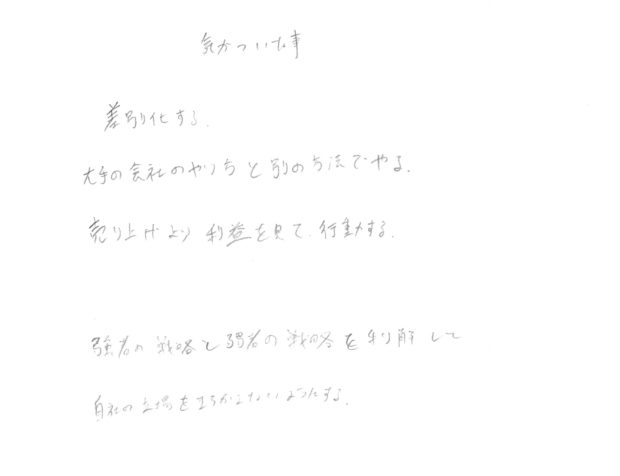 気がついた事
差別化する.
大手の会社のやり方と別の方法でやる.
売り上げより利益を見て.行動する.
強者の戦略と弱者の戦略を利解して
自社の立場をまちがえないようにする.